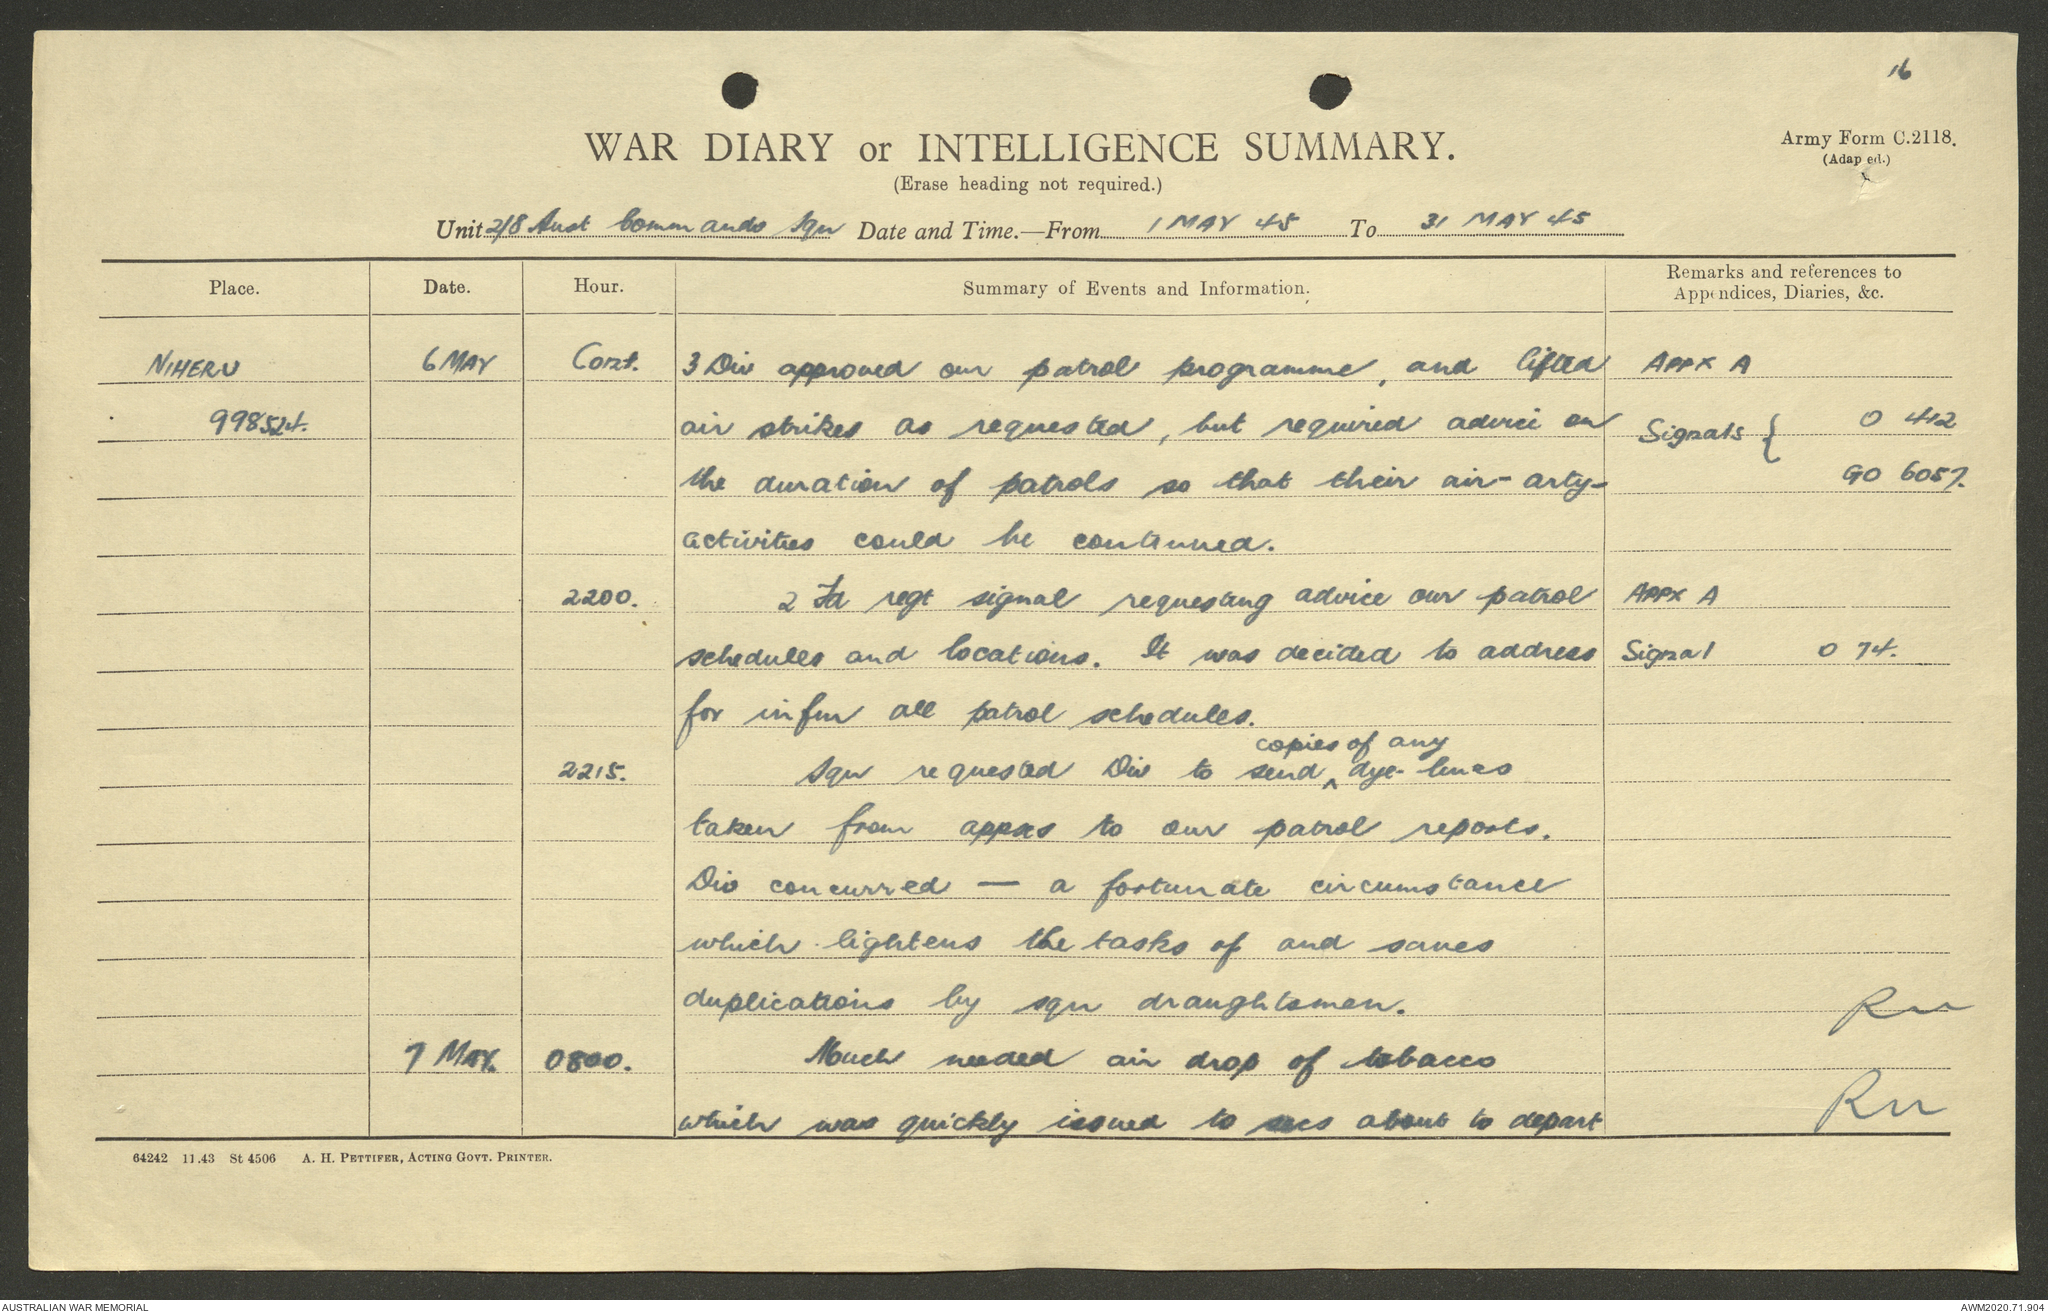 16
WAR DIARY or INTELLIGENCE SUMMARY.
Army Form C.2118.
(Adap ed.)
(Erase heading not required.)
Unit 2/8 Aust Commando Sqn Date and Time.—From 1 MAY 45 To 31 MAY 45
Place. Date. Hour. Summary of Events and Information. Remarks and references to
Appendices, Diaries, &c.
NIHERU 6 MAY Cont. 3 Div approved our patrol programme, and lifted APPX A
998524. air strikes as requested, but required advice on Signals { O 412
the duration of patrols so that their air-arty- GO 6057.
activities could be continued.
2200. 2 Fd regt signal requesting advice our patrol APPX A
schedules and locations. It was decided to address Signal O 74.
for infm all patrol schedules.
copies of any
2215. Sqn requested Div to send ^ dye-lines
taken from appxs to our patrol reports.
Div concurred — a fortunate circumstance
which lightens the tasks of and saves
duplications by sqn draughtsmen.
7 MAY. 0800. Much needed air drop of tobacco
which was quickly issued to secs about to depart
64242 11.43 St 4506 A. H. PETTIFER, ACTING GOVT. PRINTER.
AUSTRALIAN WAR MEMORIAL AWM2020.71.904